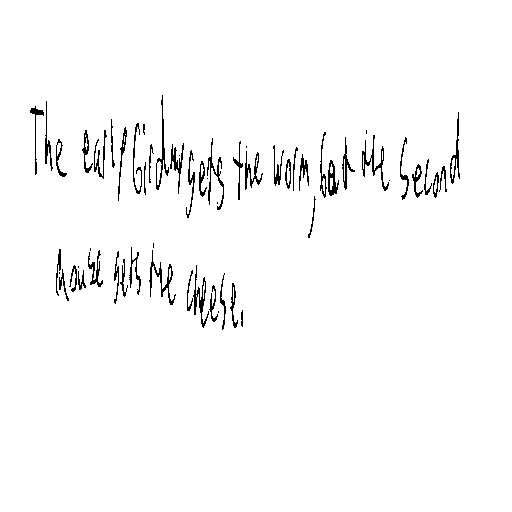 The early bird gets the worm, but the second
mouse gets the cheese.